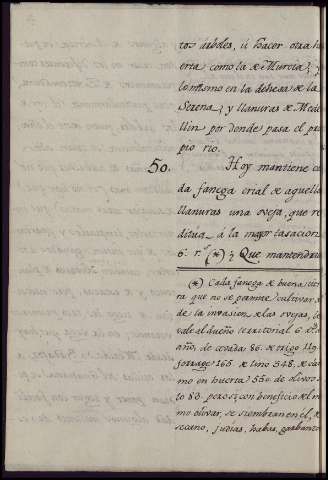 tos árboles, ú hacer otra hu
erta como la de Murcia; y
lo mismo en la dehesa de la
Serena, y llanuras de Mede
llin por donde pasa el pro
pio rio.
50. Hoy mantiene ca
da fanega erial de aquellas
llanuras una oveja, que re
ditúa á la mayor tasacion
6 r.s (*) ¿Que mantendria
(*) Cada fanega de buena tier
ra que no se permite cultivar
de la invasion de las ovejas,
vale al dueño territorial 6 r.s
años, de cevada 86. de trigo 119
forrage 165. de lino 548. de ca
mo en huerta 550. de olivos
to 80. pero si con beneficio del
mo olivar, se siembran en el, de
secano, judias, habas, garbanzos